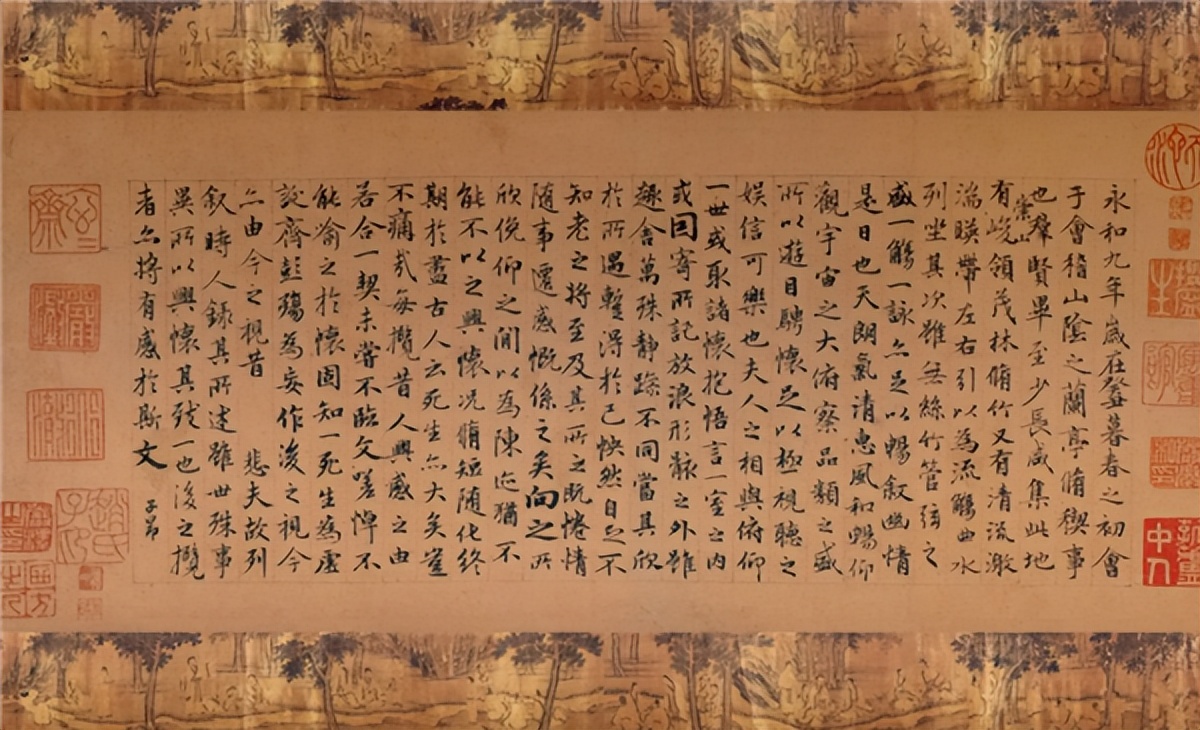 永和九年歲在癸丑暮春之初會
于會稽山陰之蘭亭脩稧事
也羣賢畢至少長咸集此地
有崇山峻領茂林脩竹又有清流激
湍暎帶左右引以為流觴曲水
列坐其次雖無絲竹管弦之
盛一觴一詠亦足以暢叙幽情
是日也天朗氣清惠風和暢仰
觀宇宙之大俯察品類之盛
所以遊目騁懷足以極視聽之
娛信可樂也夫人之相與俯仰
一世或取諸懷抱悟言一室之內
或因寄所託放浪形骸之外雖
趣舍萬殊靜躁不同當其欣
於所遇暫得於己怏然自足不
知老之將至及其所之既惓情
隨事遷感慨係之矣向之所
欣俛仰之閒以為陳迹猶不
能不以之興懷況脩短隨化終
期於盡古人云死生亦大矣豈
不痛哉每攬昔人興感之由
若合一契未嘗不臨文嗟悼不
能喻之於懷固知一死生為虛
誕齊彭殤為妄作後之視今
亦由今之視昔 悲夫故列
叙時人錄其所述雖世殊事
異所以興懷其致一也後之攬
者亦將有感於斯文
子昂
趙氏子昂